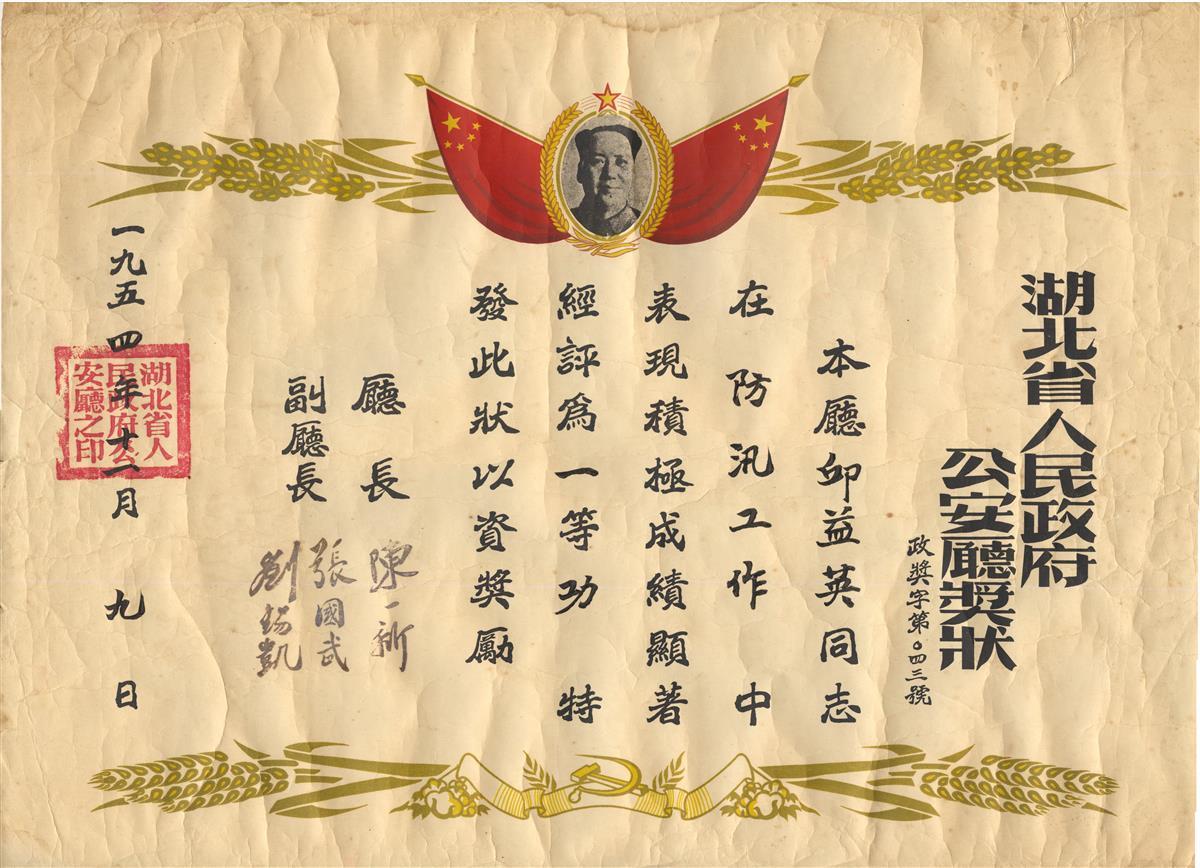 湖北省人民政府
公安廳獎狀
政獎字第〇四三號
本廳邱益英同志
在防汛工作中
表現積極成績顯著
經評爲一等功特
發此狀以資獎勵
廳長 陳一新
副廳長 張國武
劉錫凱
一九五四年十一月九日
湖北省人
民政府公
安廳之印